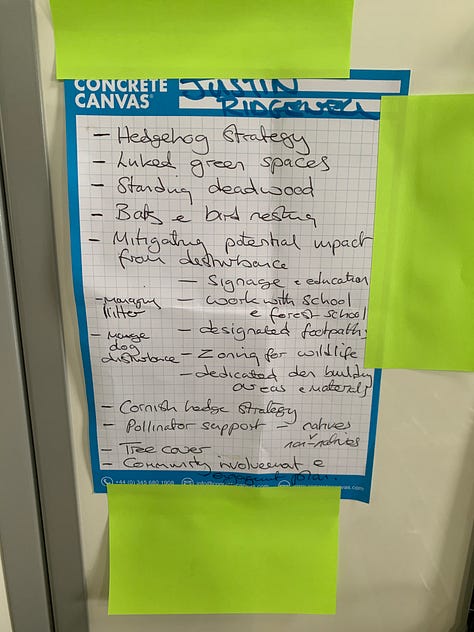 CONCRETE
CANVAS
JUSTIN
RIDGEWELL
- Hedgehog Strategy
- Linked green spaces
- Standing deadwood
- Bats & bird nesting
- Mitigating potential impact
from disturbance
- Signage & education
- Managing litter
- work with school
& forest school
- designated footpaths
- Manage dog disturbance
- Zoning for wildlife
- dedicated den building
areas & materials
- Cornish hedge strategy
- Pollinator support - natives
v
non-natives
- Tree cover
- Community involvement &
engagement plan.
+44 (0) 345 680 1908